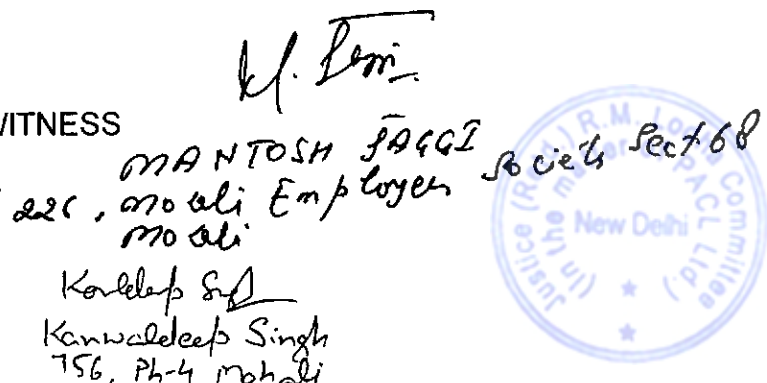 WITNESS
MANTOSH JAGGI
226, Mohali Employees Society Sect 68
Mohali
Kanwaldeep Singh
756, Ph-4 Mohali
Justice (Retd.) R.M. Lodha Committee
(In the matter of PACL Ltd.)
New Delhi